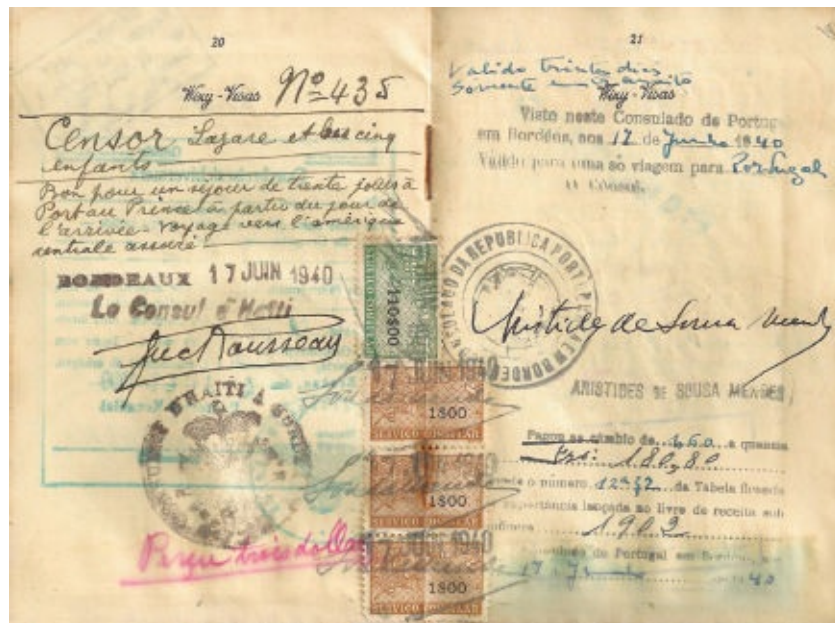 20
Wizy - Visas Nº 435
Censor Lazare et les cinq
enfants
Bon pour un séjour de trente jours à
Port au Prince à partir du jour de
l'arrivée - voyage vers l'amérique
centrale assuré
BORDEAUX 17 JUIN 1940
Le Consul d'Haiti
Rousseau
D'HAITI À
Reçu trois dollars
110$00
17 JUIN 1940
1$00
SERVIÇO CONSULAR
1$00
17 JUIN 1940
1$00
SERVIÇO CONSULAR
21
Valido trinta dias
Somente em transito
Wizy - Visas
Visto neste Consulado de Portugal
em Bordéus, aos 17 de Junho 1940
Válido para uma só viagem para Portugal
O Cônsul
CONSULADO DA REPUBLICA PORTUGUESA EM BORDEUS
Aristides de Sousa Mendes
ARISTIDES DE SOUSA MENDES
Pagou ao câmbio de 1,60 a quantia
Esc: 180,80
o número 12 da Tabela
importância lançada no livro de receita sob
1902
de Portugal em
17 Junho 40